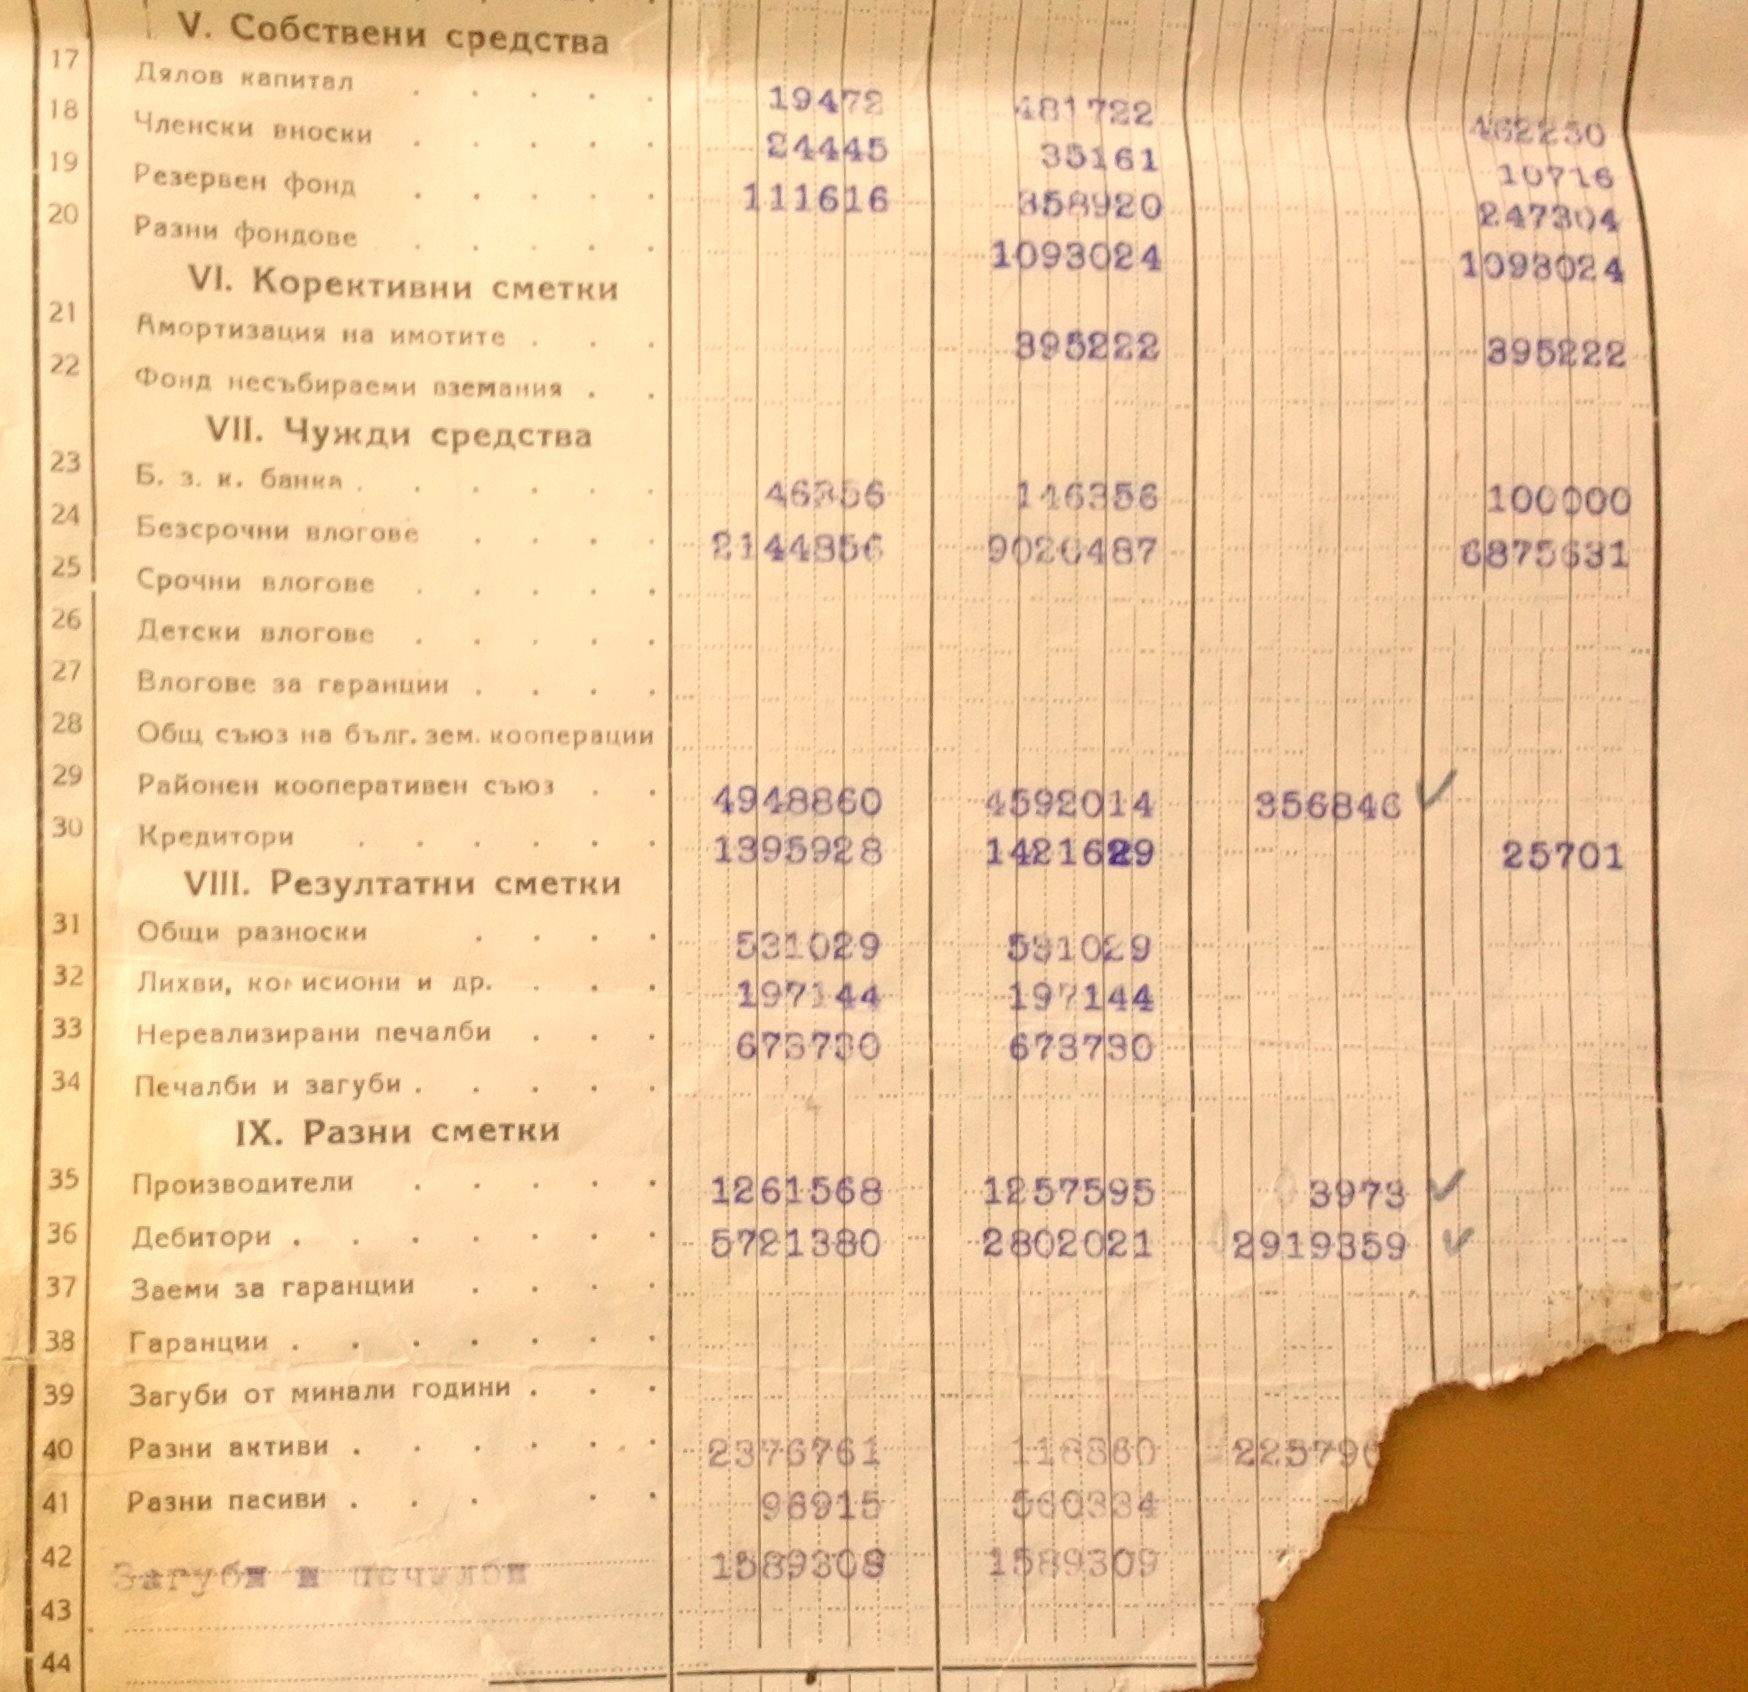 V. Собствени средства
17 Дялов капитал . . . . . 19472 481722 462250
18 Членски вноски . . . . . 24445 35161 10716
19 Резервен фонд . . . . . 111616 358920 247304
20 Разни фондове . . . . . 1093024 1093024
VI. Корективни сметки
21 Амортизация на имотите . . . 395222 395222
22 Фонд несъбираеми вземания . .
VII. Чужди средства
23 Б. з. к. банка . . . . . . 46356 146356 100000
24 Безсрочни влогове . . . . 2144856 9020487 6875631
25 Срочни влогове . . . . .
26 Детски влогове . . . . .
27 Влогове за гаранции . . . .
28 Общ съюз на бълг. зем. кооперации
29 Районен кооперативен съюз . . 4948860 4592014 356846 ✓
30 Кредитори . . . . . . 1395928 1421629 25701
VIII. Резултатни сметки
31 Общи разноски . . . . 531029 531029
32 Лихви, комисиони и др. . . . 197144 197144
33 Нереализирани печалби . . . 673730 673730
34 Печалби и загуби . . . . .
IX. Разни сметки
35 Производители . . . . . 1261568 1257595 3973 ✓
36 Дебитори . . . . . . . 5721380 2802021 2919359 ✓
37 Заеми за гаранции . . . .
38 Гаранции . . . . . . .
39 Загуби от минали години . . .
40 Разни активи . . . . . . 2376761 118860 225790
41 Разни пасиви . . . . . 96915 560334
42 Загуби и печалби 1589309 1589309
43
44